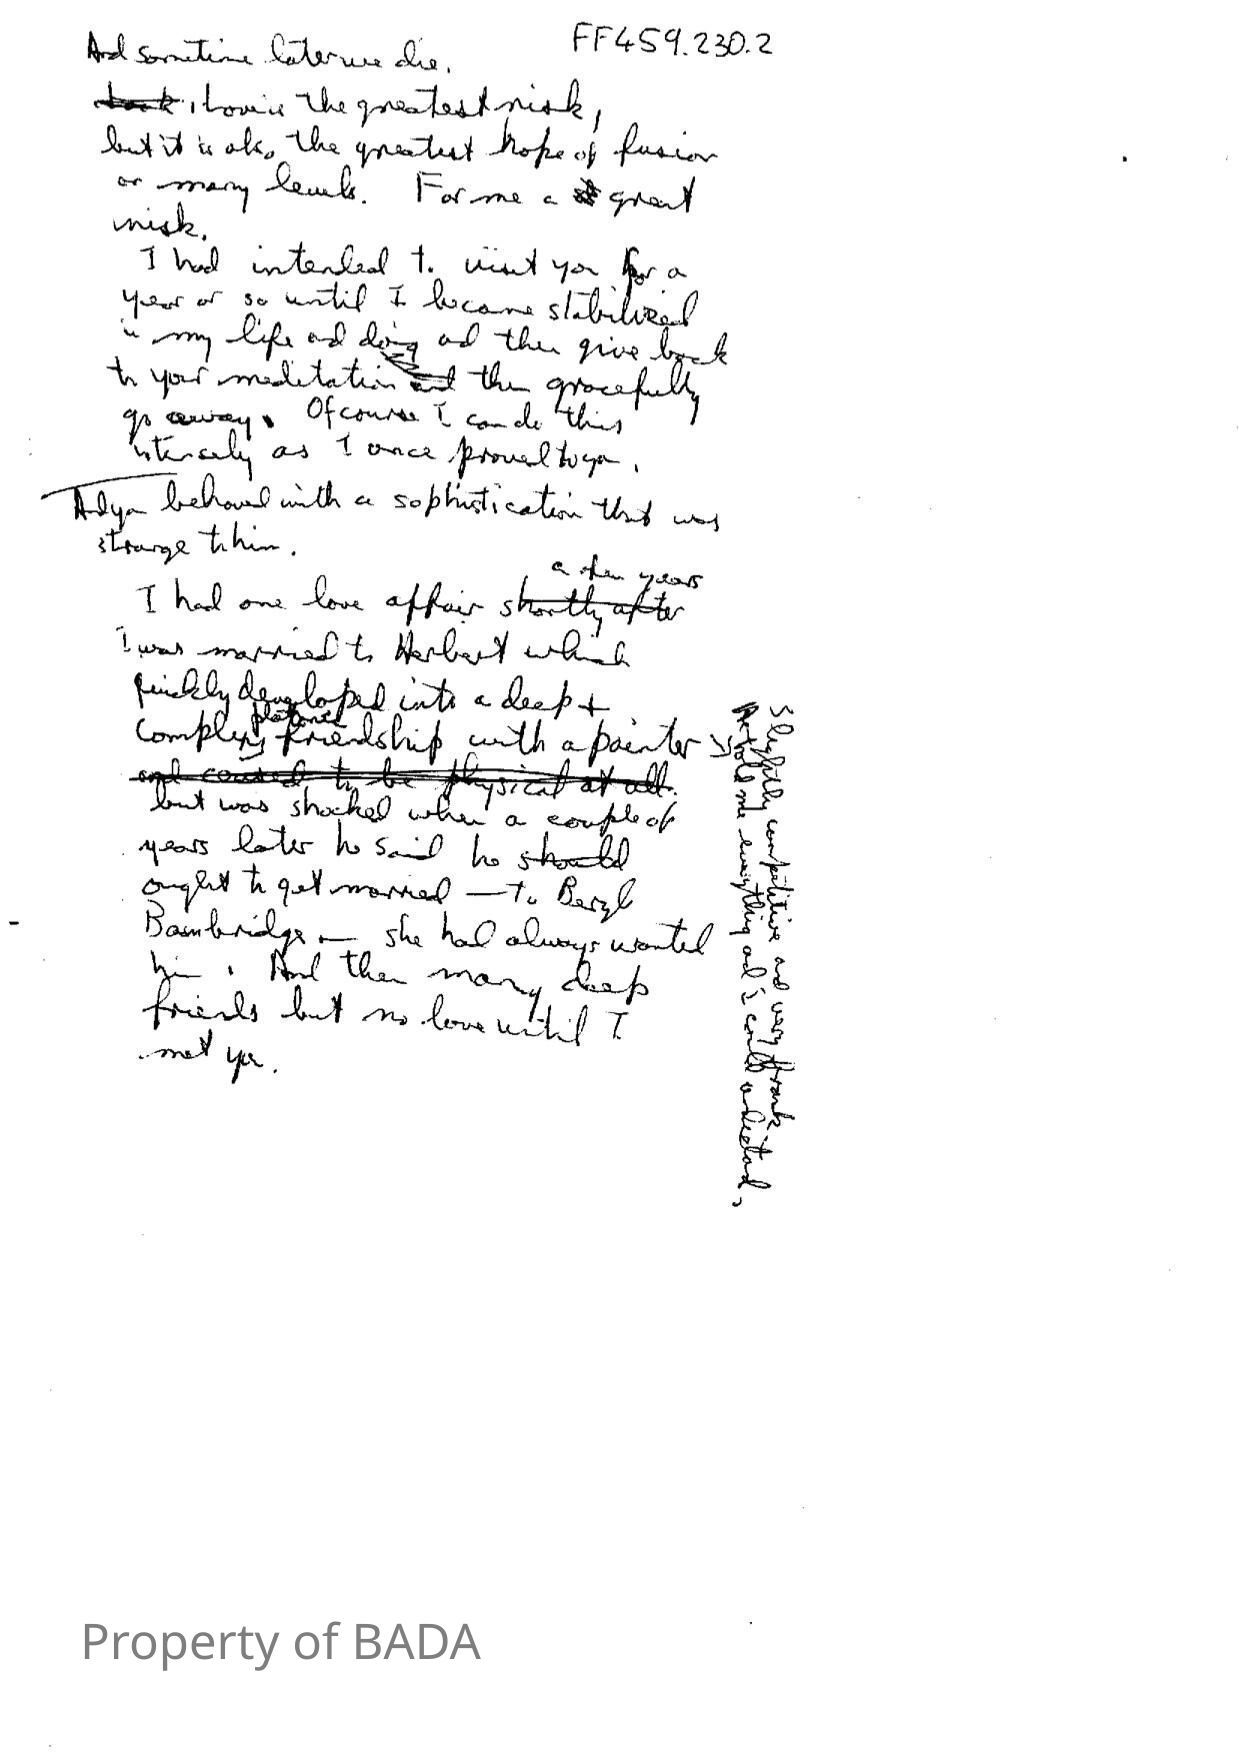 FF459.230.2
And sometime later we die.
Love is the greatest risk,
but it is also the greatest hope of fusion
on many levels. For me a great
risk.
I had intended to visit you for a
year or so until I became stabilized
in my life and doing and then give back
to your meditation and then gracefully
go away. Of course I can do this
intensely as I once proved to you.
And you behaved with a sophistication that was
strange to him.
a few years
I had one love affair shortly after
I was married to Herbert which
quickly developed into a deep +
platonic
complex friendship with a painter
and ceased to be physical at all.
but was shocked when a couple of
years later he said he should
ought to get married — to Beryl
Bambridge — she had always wanted
him. And then many deep
friends but no love until I
met you.
Slightly competitive and very frank
He told me everything and I could
Property of BADA